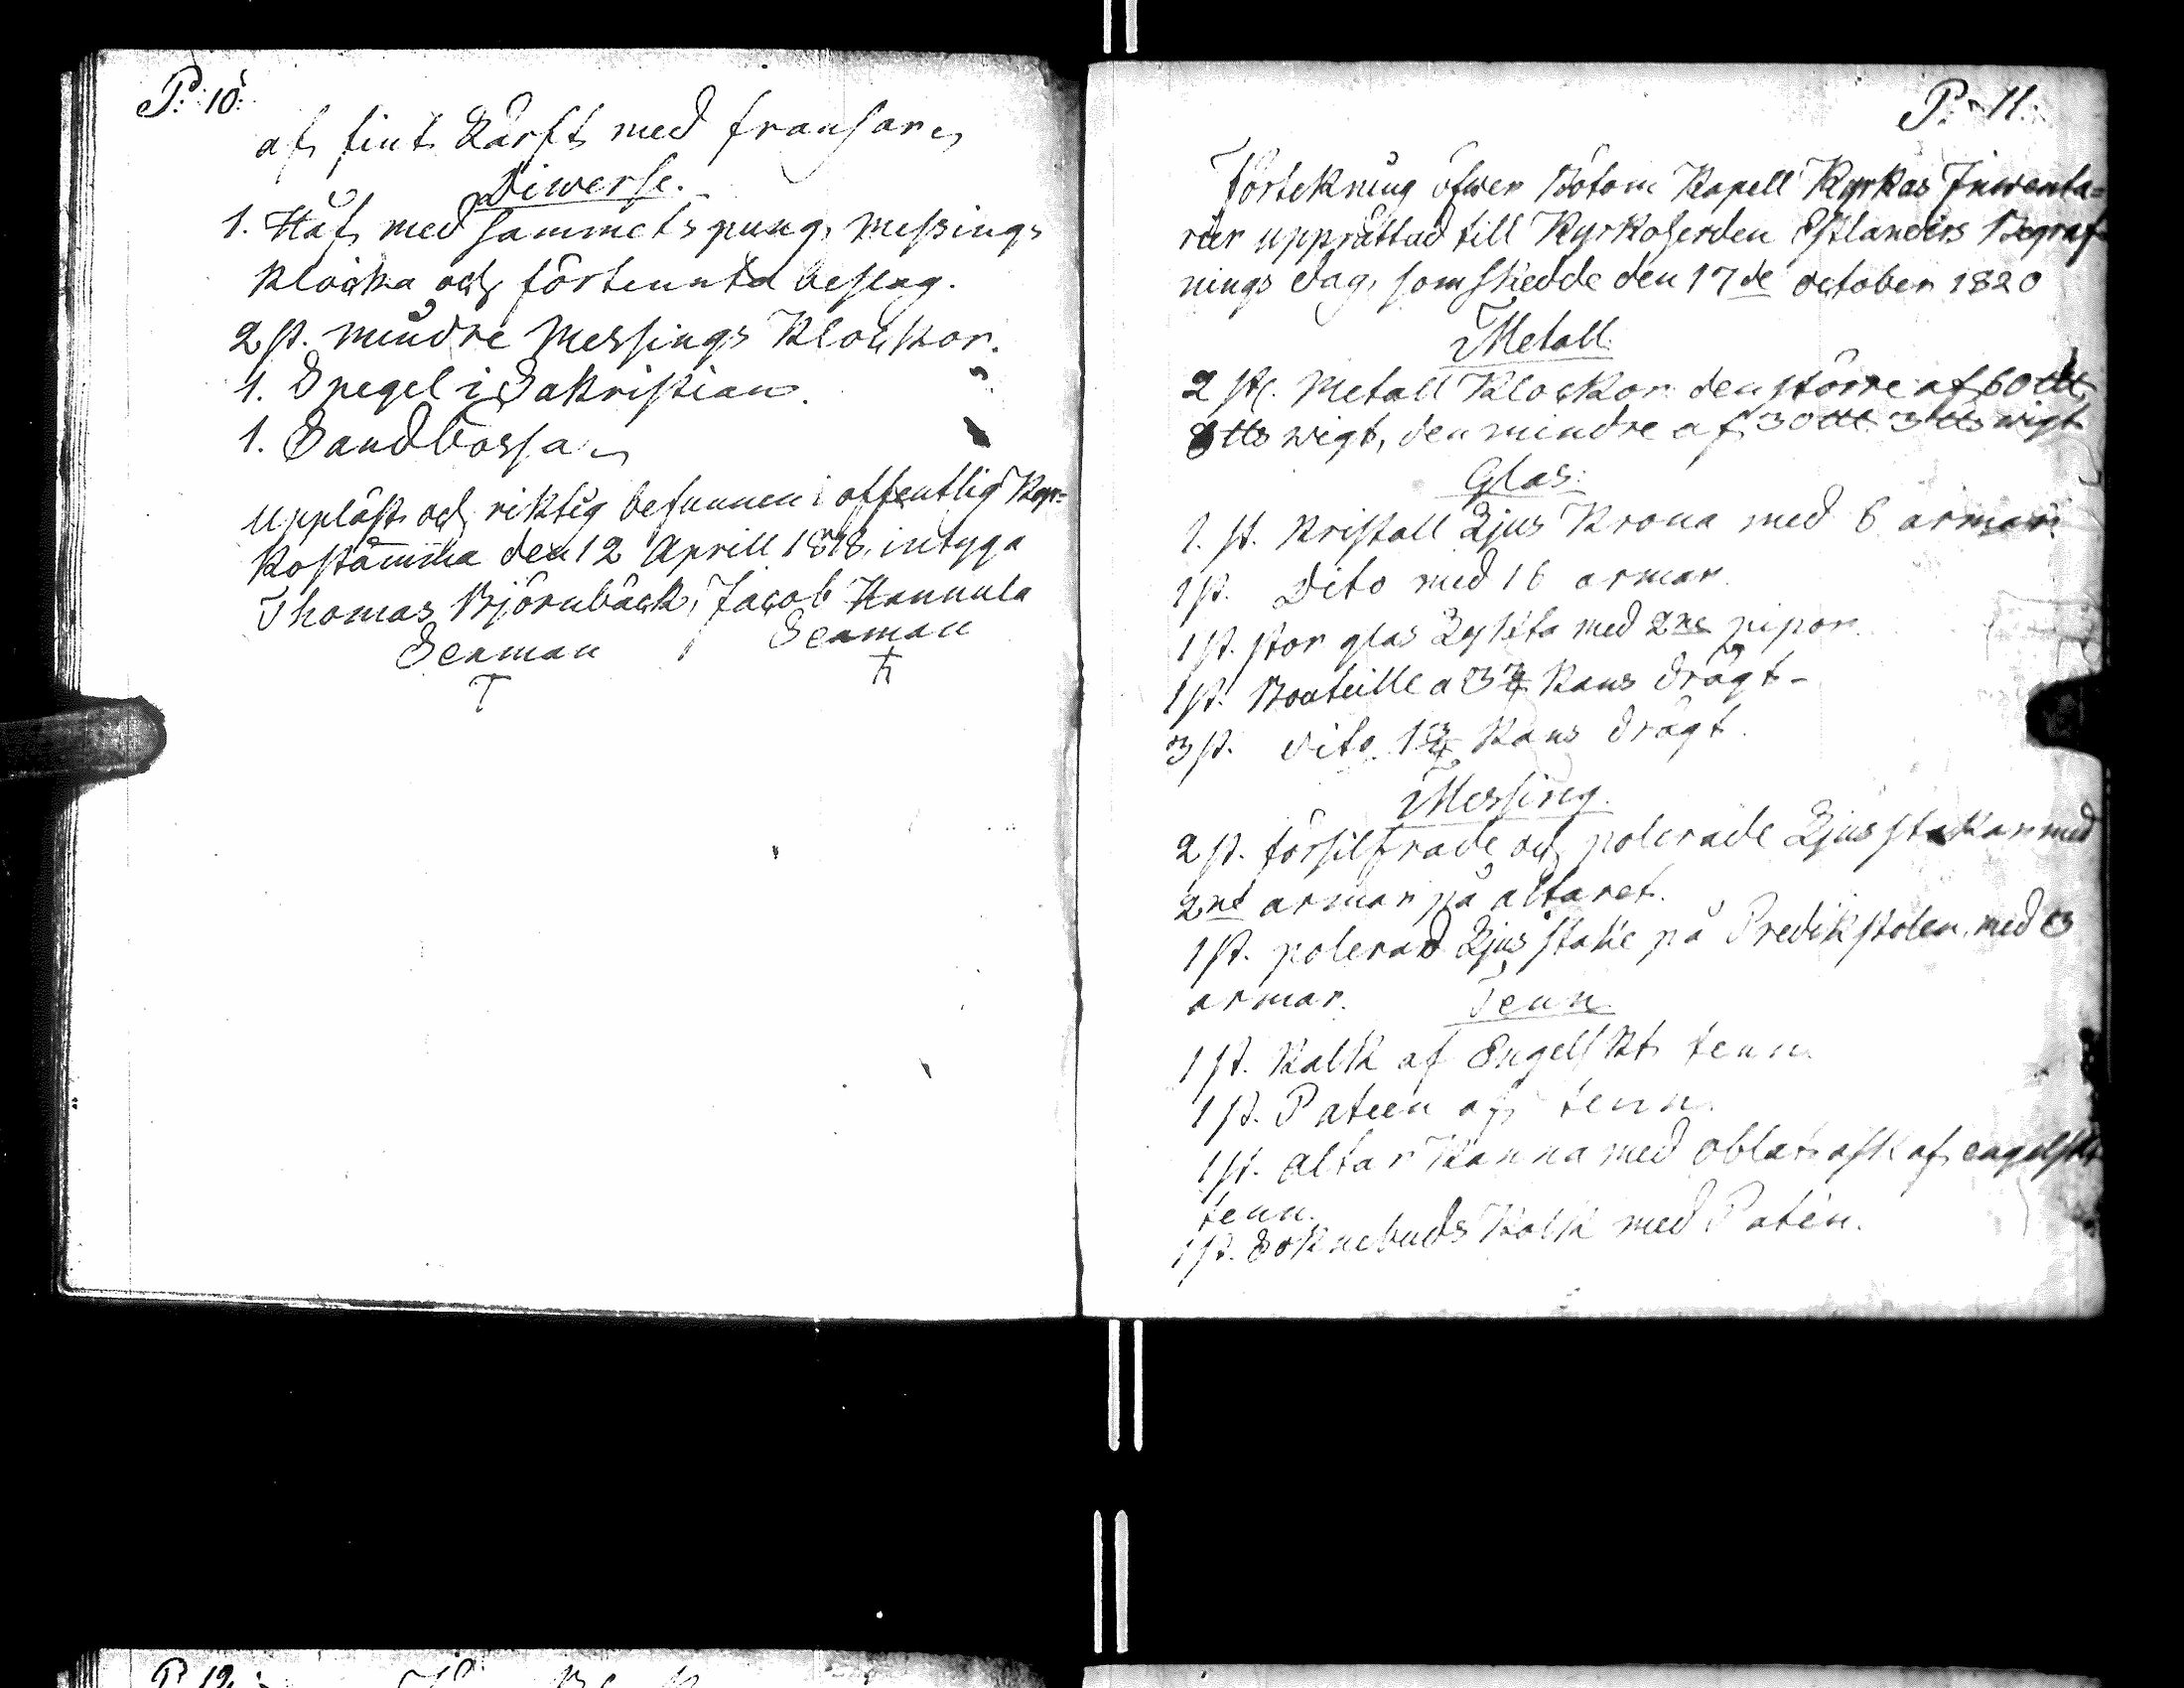 P: 10:
af fint Lärft med fransar
Diwerse.
1. Håf med sammets pung, messings
klocka och förtennta beslag.
2 st. mindre Messings Klockor.
1. Spegel i Sakristian.
1. Sandbössa
Uppläst och riktig befunnen i offentlig Kyr-
kostämma den 12 Aprill 1818, intyga
Thomas Björnbäck, Jacob Hannula
Sexman Sexman
P: 11:
Förtekning öfwer Bötom Kapell Kyrkas Inwenta-
rier upprättad till Kyrkoherden Estlanders Begraf-
nings dag, som skedde den 17de October 1820
Metall.
2 st. Metall Klockor den större af 60
wigt, den mindre af 30 wigt
Glas:
1. st. Kristall Ljus Krona med 6 armar.
1 st. Dito med 16 armar.
1 st. stor glas Lykta med 2ne pipor.
1 st. Bouteille a 3 3/4 Kans drägt-
3 st. dito 1 3/4 Kans drägt.
Messing.
2 st. försilfrade och polerade Ljusstakar med
2ne armar på altaret.
1 st. polerad Ljusstake på Predikstolen med 3
armar. Tenn.
1 st. Kalk af Engelskt tenn.
1 st. Pateen af tenn.
1 st. altar Kanna med oblat ask af engelskt
tenn.
1 st. Soknebuds Kalk med Patén.
P. 12.